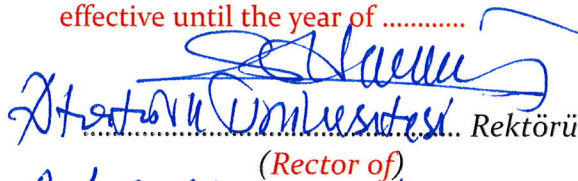 effective until the year of ............
Atatürk Üniversitesi Rektörü
(Rector of)